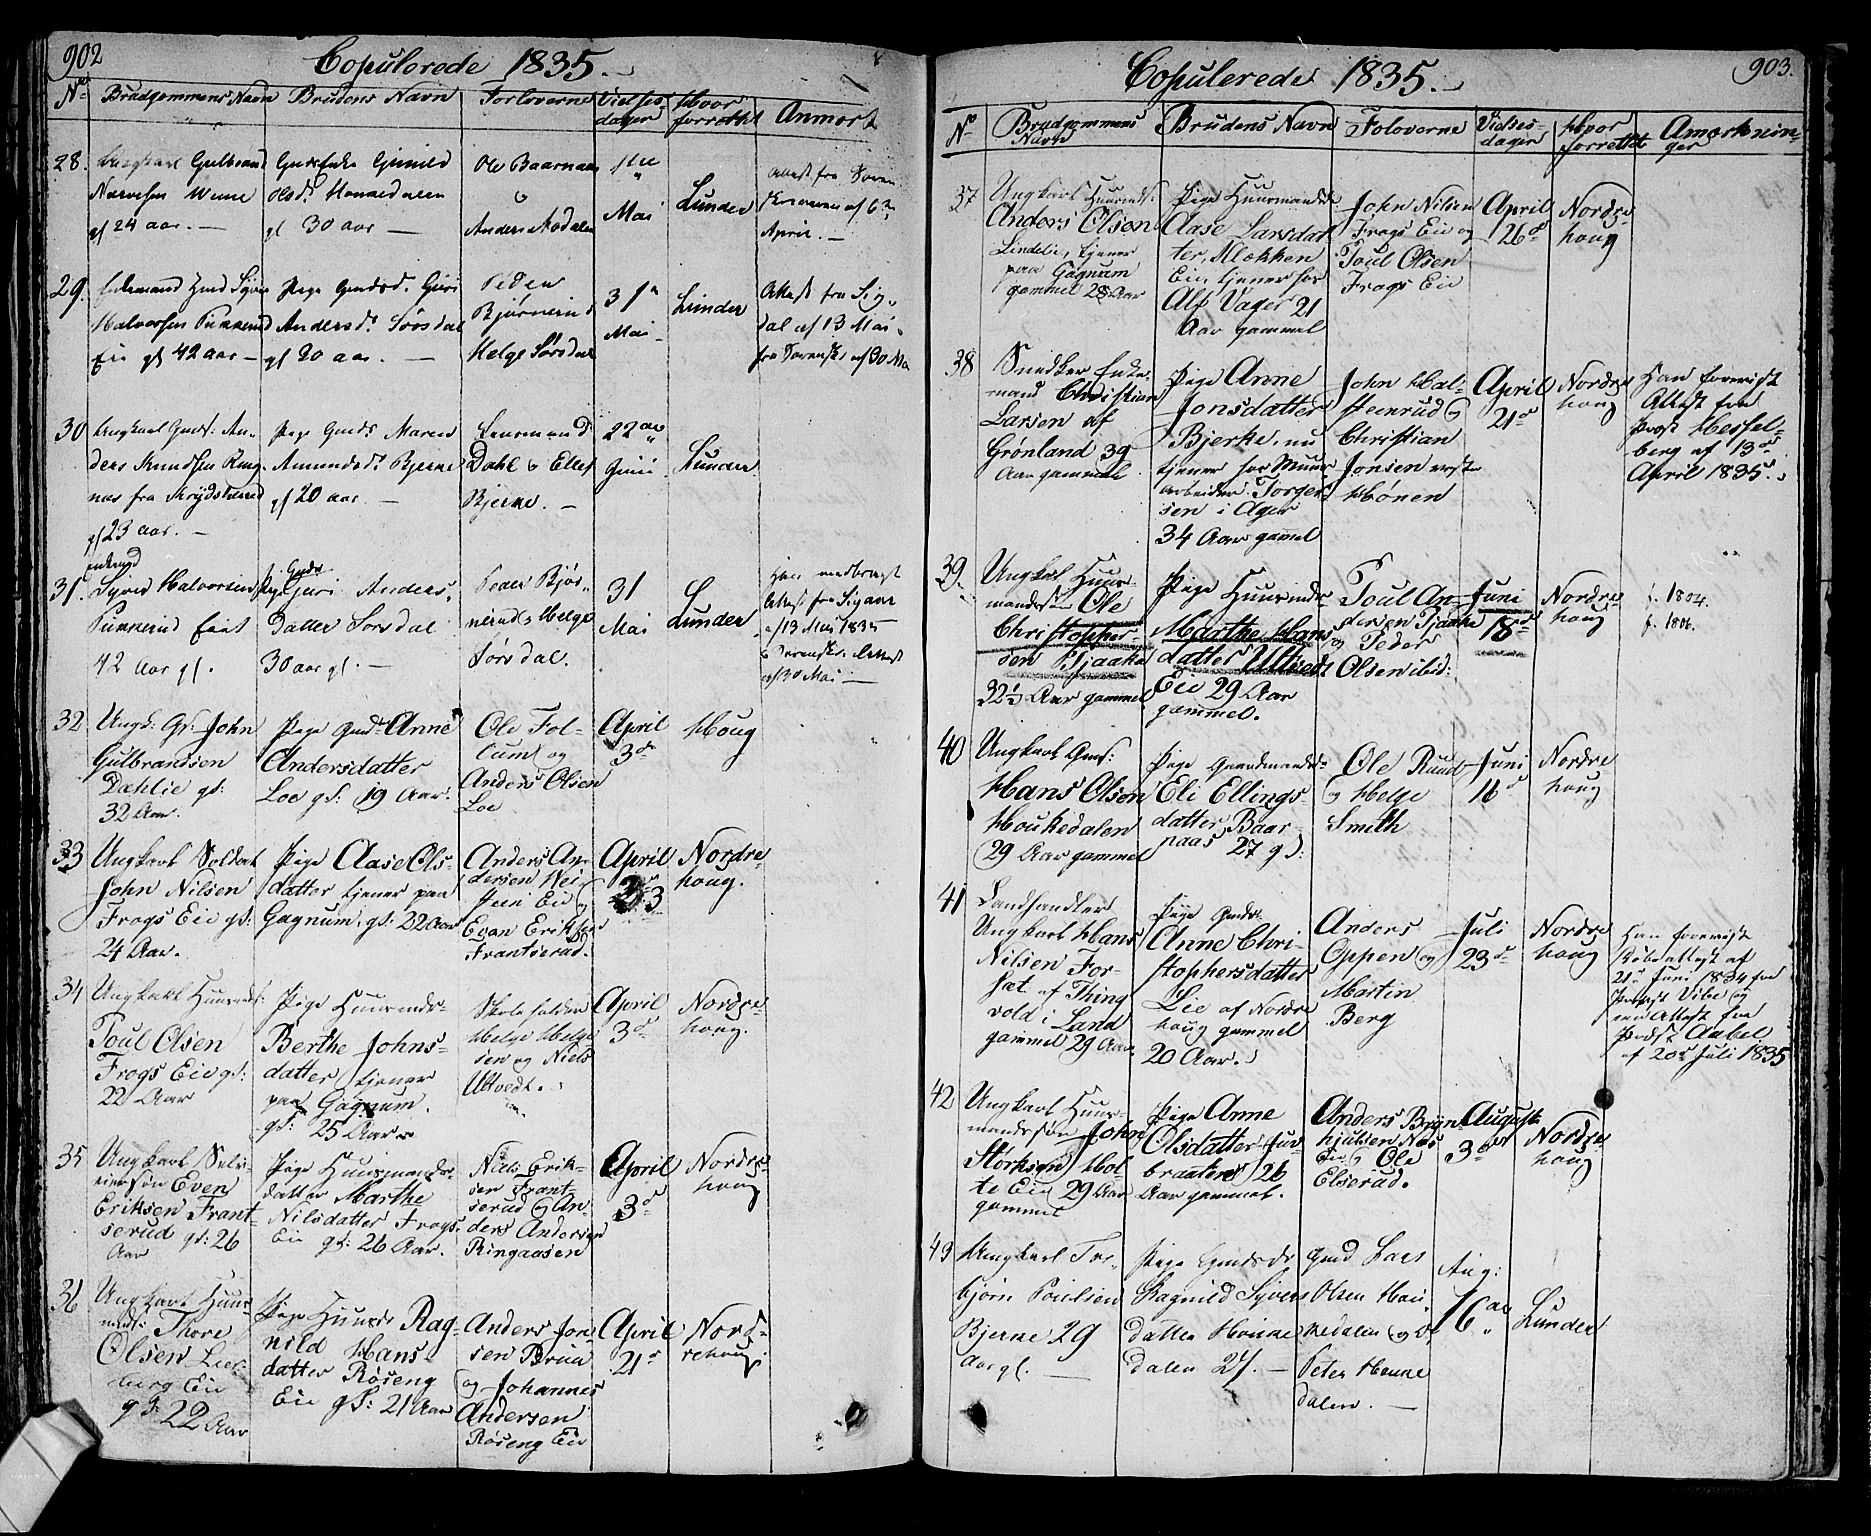 902
Copulerede 1835.
No
Brudgommens Navn
Brudens Navn
Forloverne
Vielses-
dagen
Hvor
forrettet
Anmærk
28.
Ungkarl Gulbrand
gl 24 aar. —
Gunild
Olsdr
gl 30 aar —
Ole
Anders
Mai
Lunder
Attest fra
af 6
April. —
29.
Enkemand
Halvorsen
Eie gl 42 aar —
Pige Gmdsd. Guri
Andersdr Sørsdal
gl 30 aar. —
Peder
Bjørnerud
Helge Sørsdal
31
Mai
Lunder
Attest fra Sig-
dal af 13 Mai
af 30 Ma
30
Ungkarl Gmds: An-
ders Knudsen
fra
gl 23 aar. —
Pige Gmds Maren
Amundsdr Bjerne
gl 20 aar —
Dahl
Bjerne. —
22
Juni
Lunder
31.
Enkemd
Syver Halvorsen
42 aar gl.
Gmds
Pige Guri Anders-
datter Sørsdal
30 aar gl. —
Peder Bjør-
nerud & Helge
Sørsdal.
31
Mai
Lunder
Han medbragt
Attest fra
af 13 Mai 1835
Attest
af 30 Mai —
32
Ungk: Gs: John
Gulbrandsen
Dæhlie gl:
32 Aar.
Pige Gmdr Anne
Andersdatter
Loe gl: 19 Aar.
Ole Fol-
lum og
Anders Olsen
Loe
April
3de
Houg
33
Ungkarl Soldat
John Nilsen
Frogs Eie gl:
24 Aar.
Pige Aase Ols-
datter tjener paa
Gagnum, gl: 22 Aar
Anders An-
dersen
Eie
Even Eriksen
Frantserud.
April
3
Nordre-
houg.
34
Ungkarl Huusmds:
Poul Olsen
Frogs Eie gl:
22 Aar
Pige Huusmds-
Berthe Johns-
datter tjener
paa Gagnum.
gl: 25 Aar
Skoleholder
Helge Helge-
sen og Niels
Ultvedt.
April
3d
Nordre-
houg.
35
Ungkarl
Even
Eriksen Frant-
serud gl: 26
Aar
Pige Huusmands-
datter Marthe
Nilsdatter Frogs-
Eie gl: 26 Aar.
Niels Erik-
sen Frant-
serud og An-
ders Andersen
Ringaasen
April
3d
Nordre-
houg
36
Ungkarl Huus-
mds: Thore
Olsen
berg Eie
gl: 22 Aar
Pige Huusmds Rag-
nild Hans-
datter Røseng
Eie gl: 21 Aar
Anders Jon-
sen Bruu
og Johannes
Andersen
Røseng Eie
April
21d
Nord-
rehoug.
903.
Copulerede 1835.
No
Brudgommens
Navn
Brudens Navn
Foloverne
Vielses-
dager
Hvor
forrettet
Amærknin-
ger
37
Ungkarl Huusmds:
Anders Olsen
Lindelie, tjener
paa Gagnum
gammel 28 Aar
Pige Huusmands
Aase Larsdat
ter, Klækken
Eie, tjener hos
Alf Vager 21
Aar gammel
John Nilsen
Frogs Eie og
Poul Olsen
Frogs Eie
April
26d
Nordre
houg
38
Snedker Enke-
mand Christian
Larsen af
Grønland 39
Aar gammel
Pige Anne
Jonsdatter
Bjerke, nu
tjener hos Muur-
arbeider Torger-
sen i Ager
34 Aar gammel
John Hal-
steinrud og
Christian
Jonsen
Hønen
April
21d
Nordre
houg
Han foreviste
Attest fra
Provst Hessel-
berg af 13d
April 1835.
39.
Ungkarl Huus-
mandssøn Ole
Christopher-
sen Tjaaka
32½ Aar gammel
Pige Huusmds-
Marthe Hans
datter Ultvedt
Eie 29 Aar
gammel.
Poul An-
dersen Tjaaka
og Peder
Olsen ibid:
Juni
18d
Nordre
houg
f. 1804.
f. 1806.
40
Ungkarl Gmds:
Hans Olsen
Houkedalen
29 Aar gammel
Pige Gaardmands-
Eli Ellings-
datter, Baar
naas 27 gl:
Ole Ruud
og Helge
Smith
Juni
16d
Nordre
houg
41
Landhandler
Ungkarl Hans
Nilsen For-
sæt af Thing
vold i Land
gammel 29 Aar
Pige Gmds
Anne Chri-
stophersdatter
Lie af Nordre
houg gammel
20 Aar.
Anders
Oppen og
Martin
Berg
Juli
23d
Nordre
houg
Han foreviste
Døbeattest af
21d Juni 1834 fra
Provst Vibe og
een Attest fra
Præst Aabel
af 20d Juli 1835
42
Ungkarl Huus-
mandssøn John
Størksen Hol
te Eie 29 Aar
gammel
Pige Anne
Olsdatter Fur-
braaten 26
Aar gammel.
Anders Bryn-
hjulsen Næs
Eie og Ole
Elserud.
August
3d
Nordre
houg
43
Ungkarl Tor-
bjørn Poulsen
Bjerne 29
Aar gl. —
Pige Gmdsdr
Ragnild Syvers
datter Houke
dalen 27. —
Gmd Lars
Olsen Hou-
kedalen og
Peter Houke
dalen. —
Aug:
16
Lunder